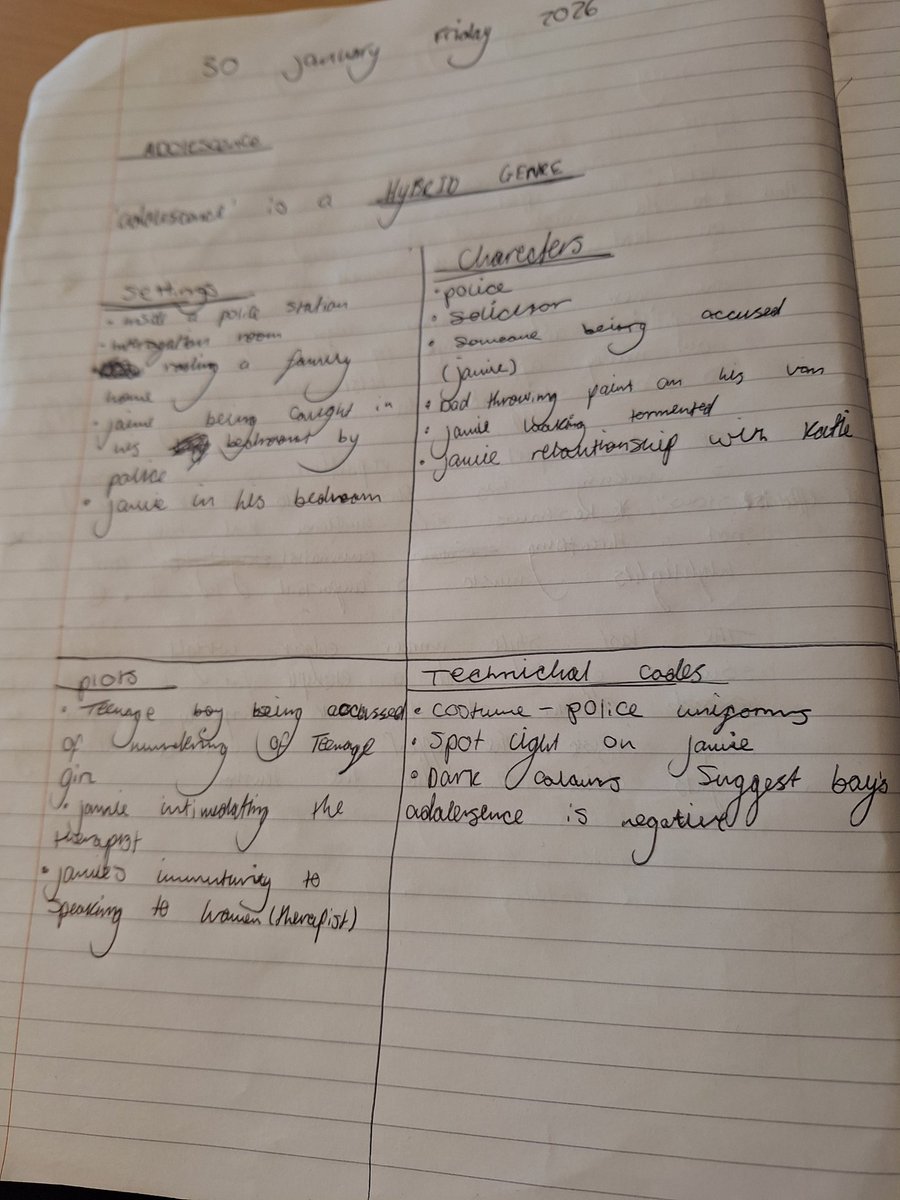 30 january friday 2026
ADOLESCENCE
'adolescence' is a HYBRID GENRE
Settings
• inside a police station
• interrogation room
raiding a family
home
• jamie being caught in
his bedroomt by
police
• jamie in his bedroom
Charecters
• police
• solicisor
• someone being accused
(jamie)
• Dad throwing paint on his van
• jamie looking tormented
• jamie relationtionship with Katie
plots
• Teenage boy being accussed
of murdering of Teenage
girl
• jamie intimedating the
therapist
• jamie's immuturity to
speaking to women (therapist)
Technichal codes
• costume - police uniforms
• Spot light on jamie
• Dark colours Suggest boy's
adolersence is negative